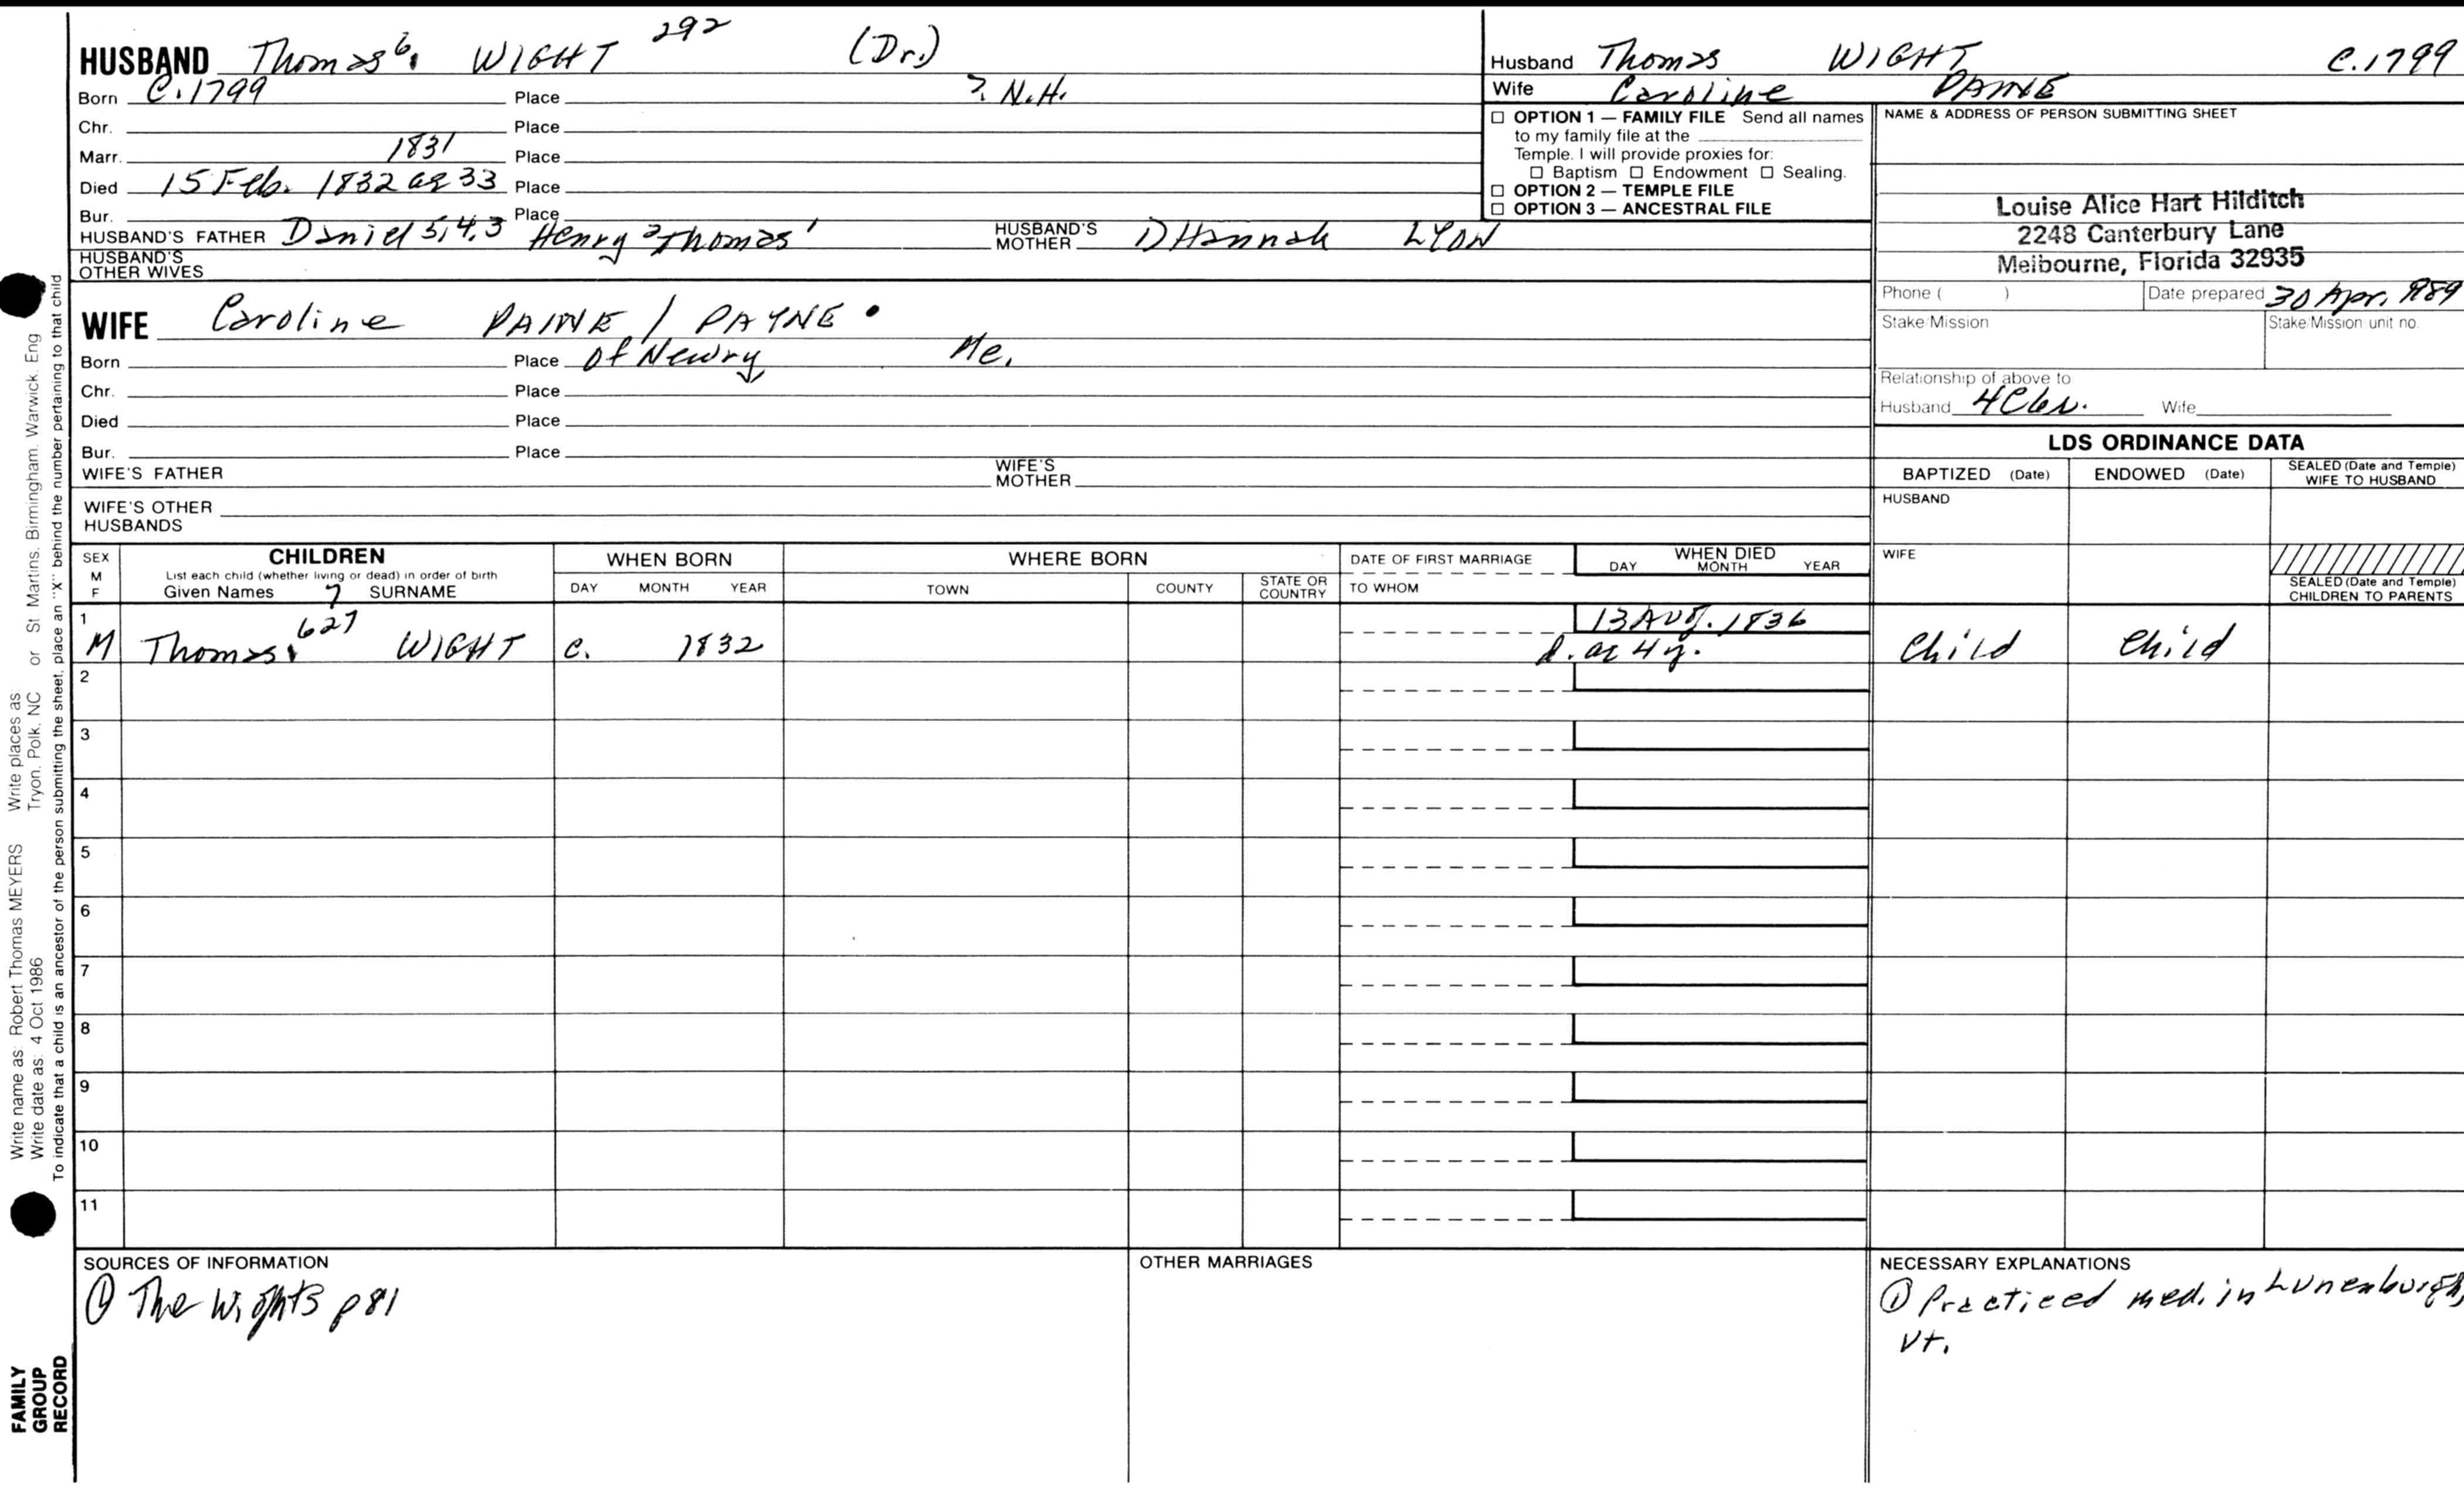 HUSBAND Thomas 6. WIGHT 292 (Dr.)
Born C. 1799 Place ?. N.H.
Chr. Place
Marr. 1831 Place
Died 15 Feb. 1832 ae 33 Place
Bur. Place
HUSBAND'S FATHER Daniel 5,4,3 Henry 2 Thomas 1 HUSBAND'S MOTHER Hannah LYON
HUSBAND'S OTHER WIVES
WIFE Caroline PAINE / PAYNE
Born Place Of Newry Me.
Chr. Place
Died Place
Bur. Place
WIFE'S FATHER WIFE'S MOTHER
WIFE'S OTHER HUSBANDS
Husband Thomas WIGHT C. 1799
Wife Caroline PAINE
☐ OPTION 1 — FAMILY FILE Send all names
to my family file at the
Temple. I will provide proxies for:
☐ Baptism ☐ Endowment ☐ Sealing.
☐ OPTION 2 — TEMPLE FILE
☐ OPTION 3 — ANCESTRAL FILE
NAME & ADDRESS OF PERSON SUBMITTING SHEET
Louise Alice Hart Hilditch
2248 Canterbury Lane
Melbourne, Florida 32935
Phone ( ) Date prepared 30 Apr. 1989
Stake/Mission Stake/Mission unit no.
Relationship of above to
Husband Wife
LDS ORDINANCE DATA
BAPTIZED (Date) ENDOWED (Date) SEALED (Date and Temple) WIFE TO HUSBAND
HUSBAND
WIFE
SEALED (Date and Temple)
CHILDREN TO PARENTS
SEX M F
CHILDREN
List each child (whether living or dead) in order of birth
Given Names 7 SURNAME
WHEN BORN
DAY MONTH YEAR
WHERE BORN
TOWN COUNTY STATE OR COUNTRY
DATE OF FIRST MARRIAGE
TO WHOM
WHEN DIED
DAY MONTH YEAR
1 M Thomas. 627 WIGHT C. 1832 13 Aug. 1836 Child Child
d. ae 4 y.
2
3
4
5
6
7
8
9
10
11
SOURCES OF INFORMATION
① The Wights p 81
OTHER MARRIAGES
NECESSARY EXPLANATIONS
① Practiced med. in Lunenburgh,
Vt.
Write name as: Robert Thomas MEYERS Write places as
Write date as: 4 Oct 1986 Tryon, Polk, NC or St Martins, Birmingham, Warwick, Eng
To indicate that a child is an ancestor of the person submitting the sheet, place an "X" behind the number pertaining to that child
FAMILY
GROUP
RECORD